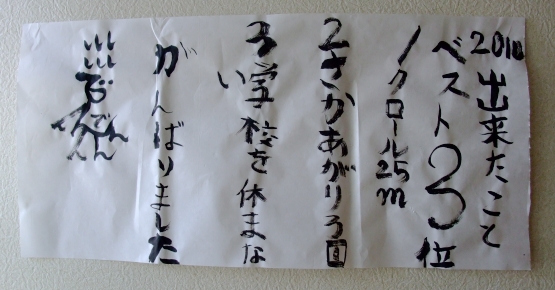 2010 出来たこと
ベスト3位
1クロール25m
2さかあがり3回
3学校を休まな
い
がんばりました